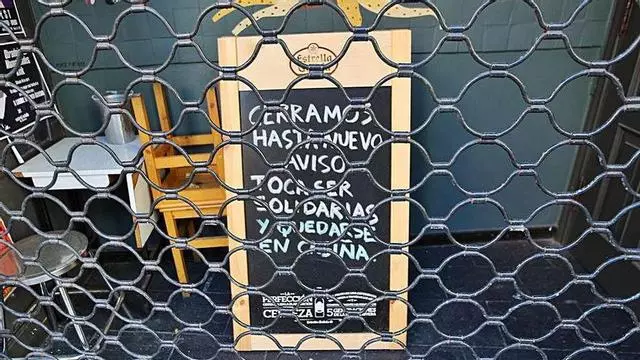 Estrella
CERRAMOS
HASTA NUEVO
AVISO
TOCA SER
SOLIDARIAS
Y QUEDARSE
EN CASIÑA
LA
PERFECCIÓN
CERVEZA
5